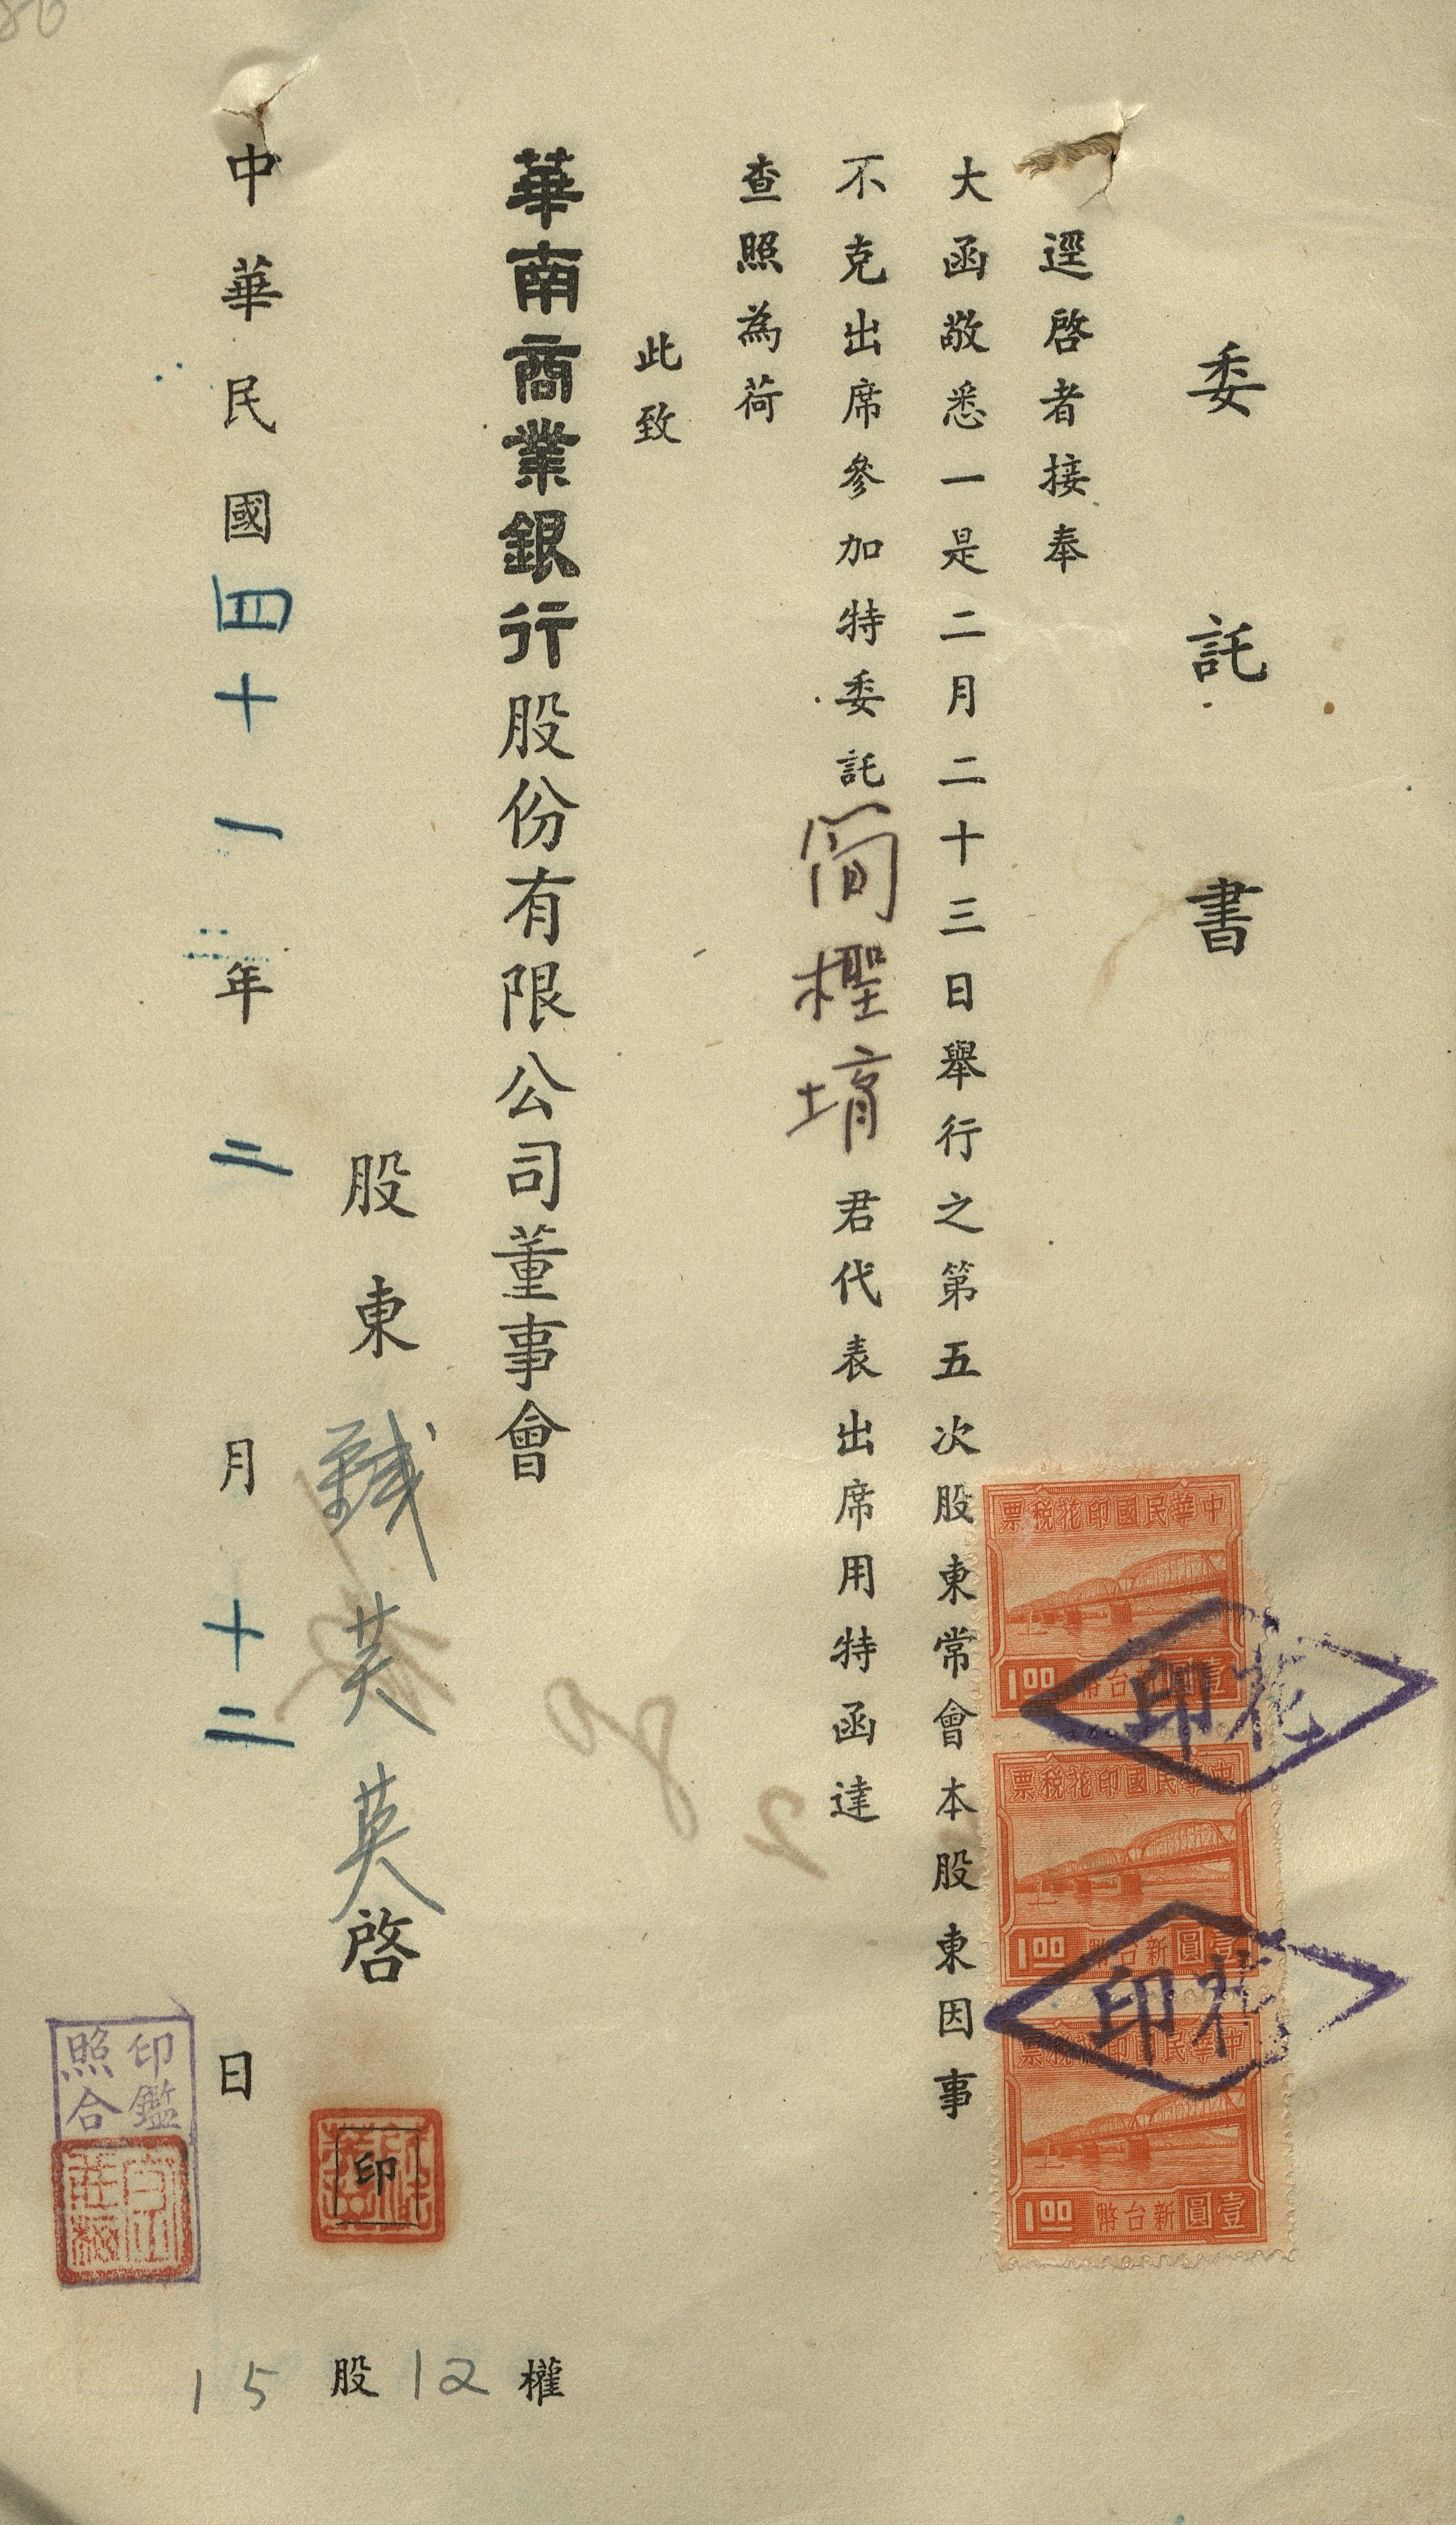 委託書
逕啓者接奉
大函敬悉一是二月二十三日舉行之第五次股東常會本股東因事
不克出席參加特委託簡檉堉君代表出席用特函達
查照為荷
此致
華南商業銀行股份有限公司董事會
股東 芙英啓
印
中華民國四十一年二月十二日
15股12權
印鑑
照合
中華民國印花稅票
壹圓新台幣
1.00
中華民國印花稅票
壹圓新台幣
1.00
中華民國印花稅票
壹圓新台幣
1.00
花印
花印
80
2